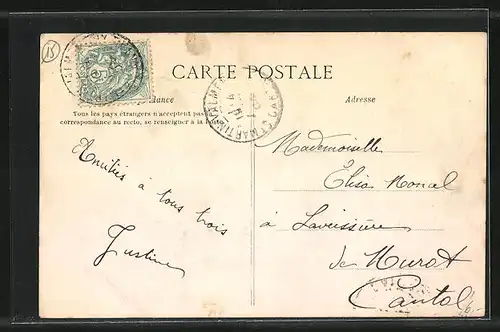 B
CARTE POSTALE
Adresse
Tous les pays étrangers n'acceptent pas
correspondance au recto, se renseigner à la
ST MARTIN VALMEROUX
Amitiés à tous trois
Justine
Mademoiselle
Élisa
à Laveissière
de Murat
Cantal